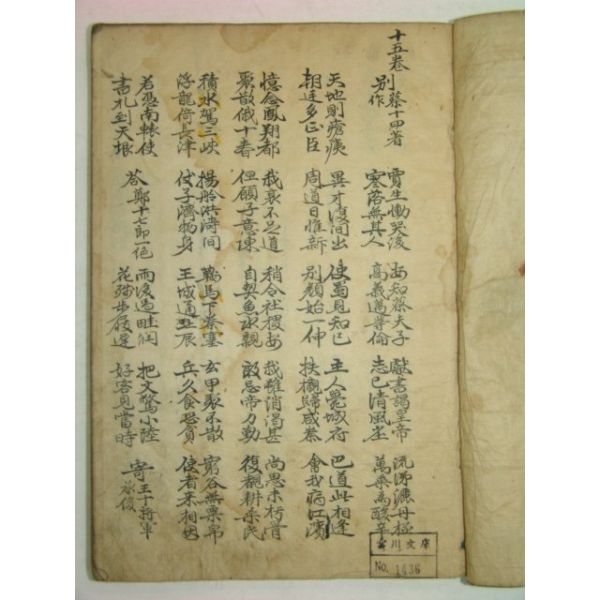 十五卷
別蔡十四著
作
賈生慟哭後
寥落無其人
安知蔡夫子
高義邁等倫
獻書謁皇帝
志已清風塵
流涕灑丹極
萬乘為酸辛
天地則瘡痍
朝廷多正臣
異才復間出
周道日惟新
使蜀見知己
別顏始一伸
主人薨城府
扶櫬歸咸秦
巴道此相逢
會我病江濱
憶念鳳翔都
聚散俄十春
我衰不足道
但願子意陳
稍令社稷安
自契魚水親
我雖消渴甚
敢忘帝力勤
尚思未朽骨
復覩耕桑民
積水駕三峽
浮龍倚長津
揚舲洪濤間
仗子濟物身
鞍馬下秦塞
王城通北辰
玄甲聚不散
兵久食恐貧
窮谷無粟帛
使者來相因
若憑南轅使
書札到天垠
答鄭十七郎一絕
雨後過畦潤
花殘步屐遲
把文驚小陸
好客見當時
寄王十將軍
承俊
川文庫
No. 1436